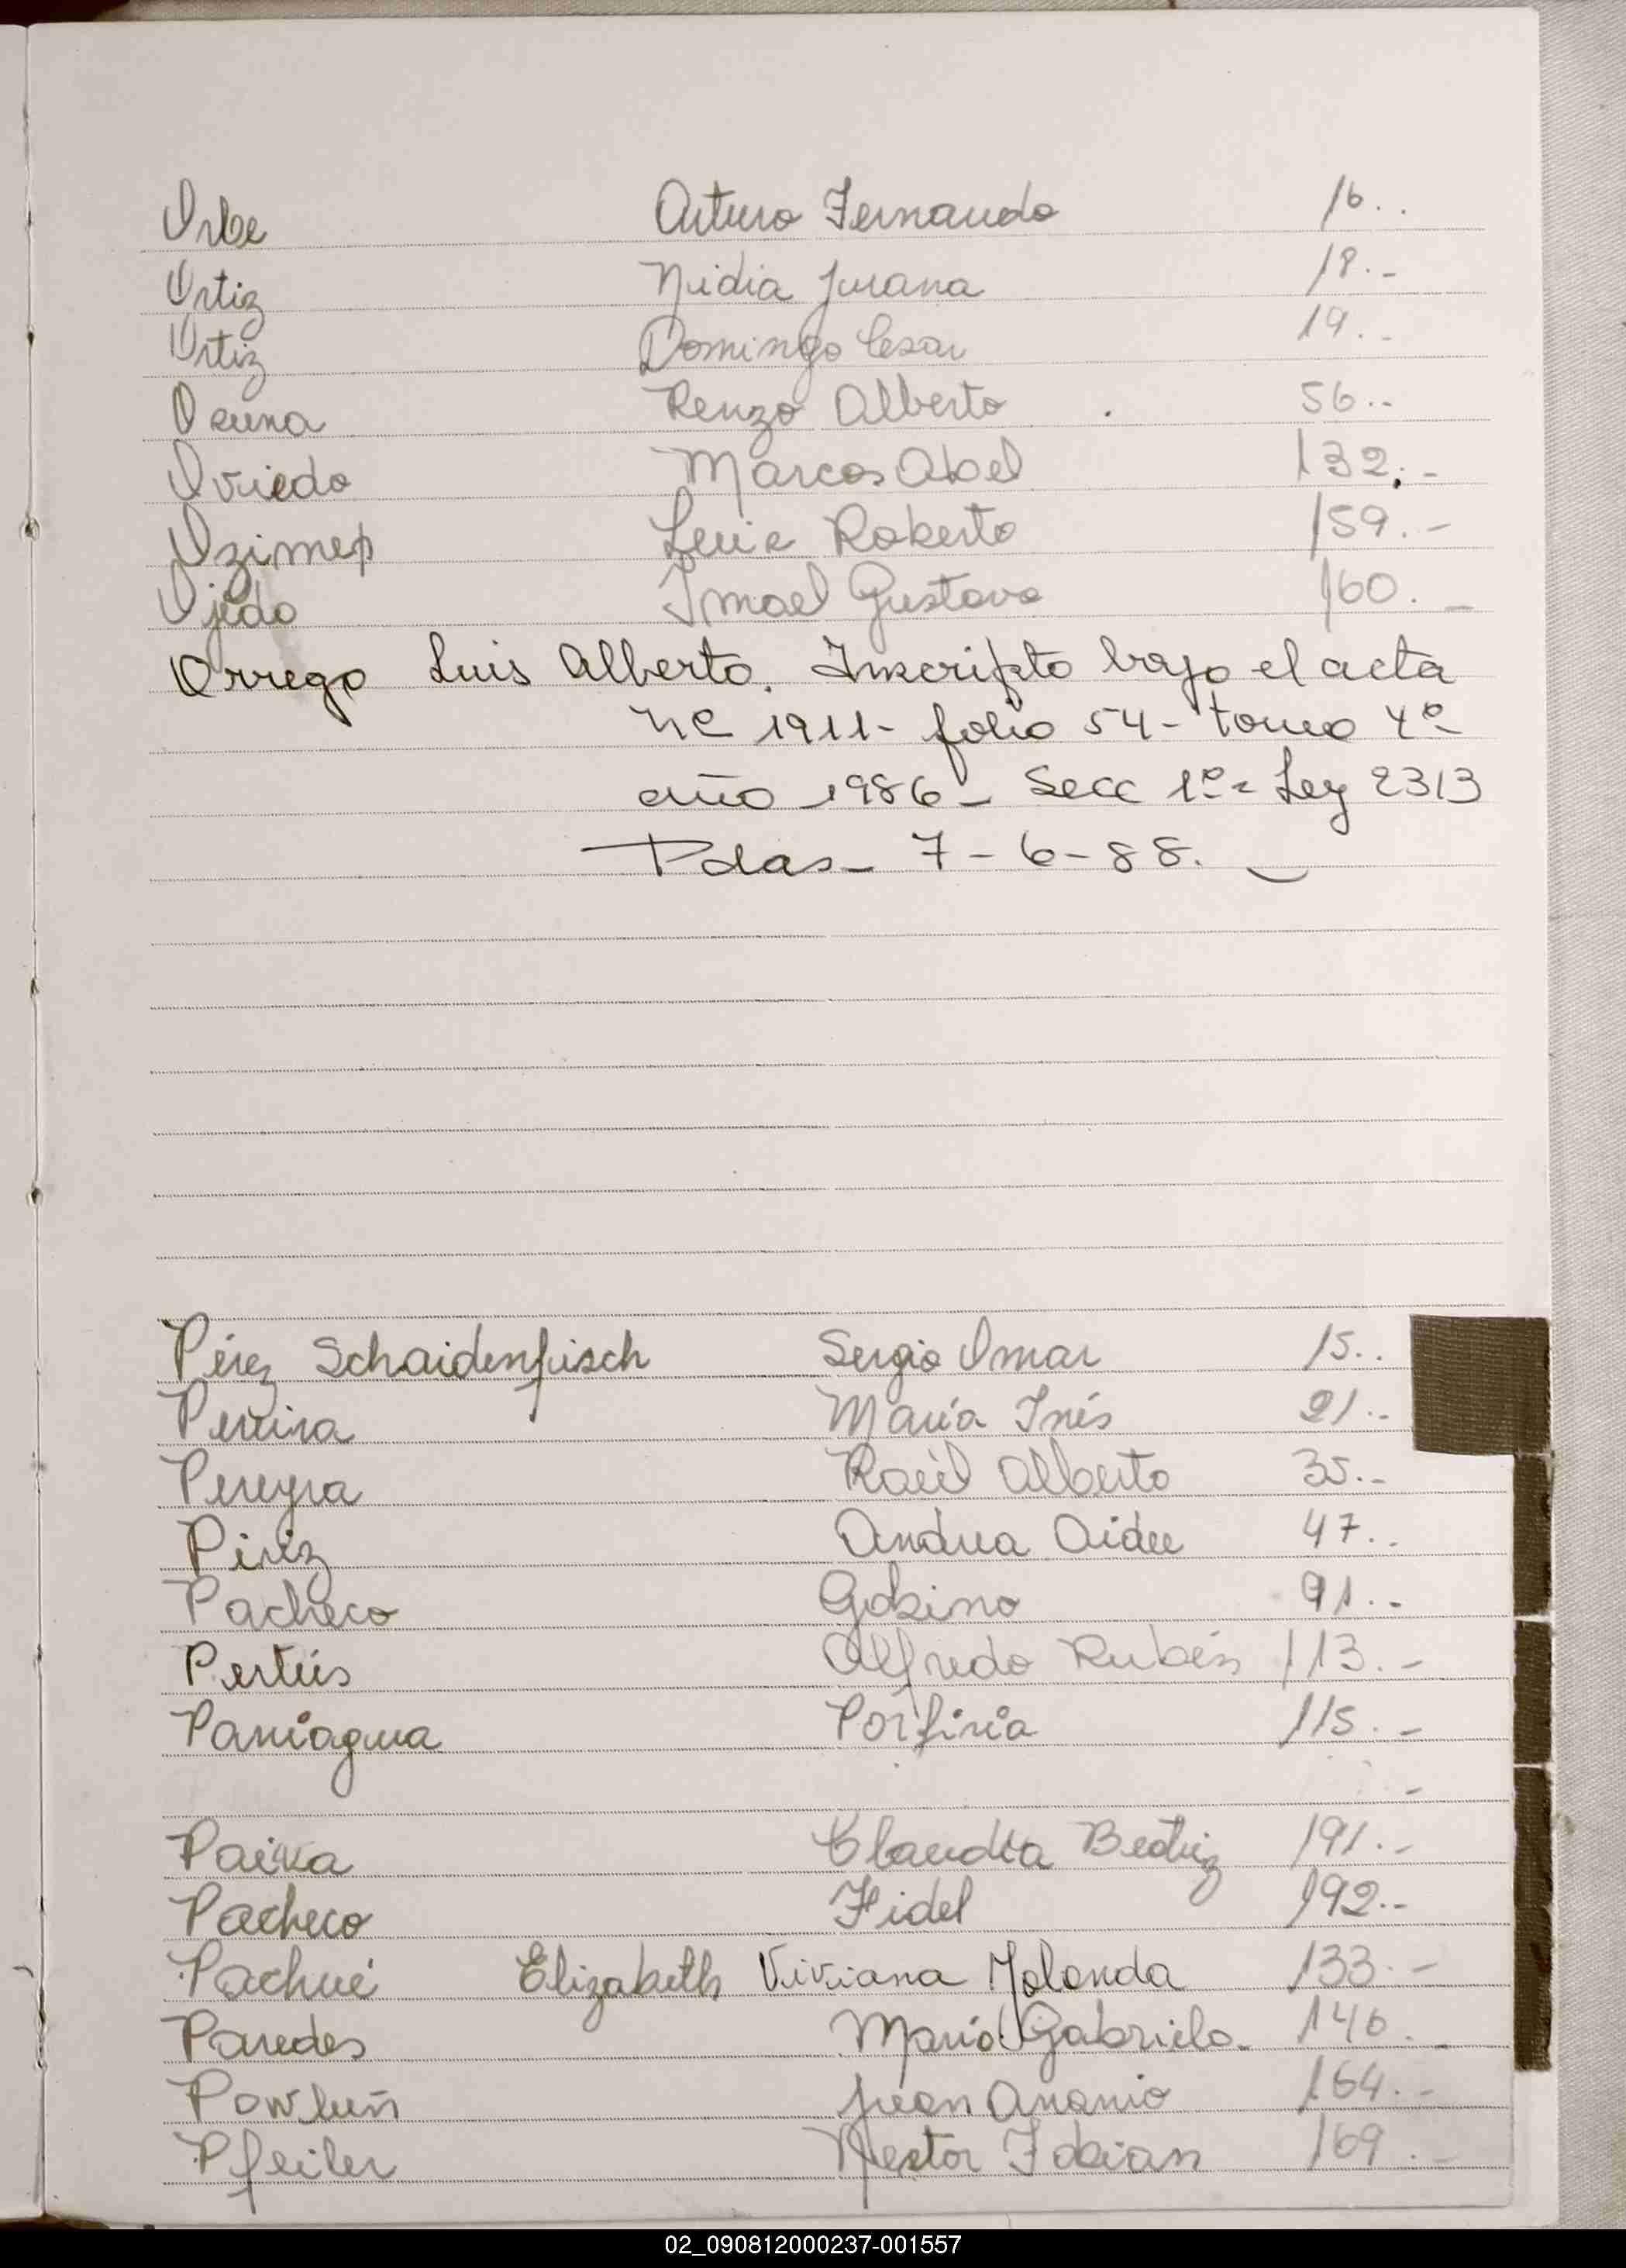 Orbe Arturo Fernando 16..
Ortiz Nidia Jurana 18.-
Ortiz Domingo Cesar 19.-
Osuna Renzo Alberto 56..
Oviedo Marcos Abel 132.-
Ozimep Luis Roberto 159.-
Ojeda Ismael Gustavo 160.-
Orrego Luis Alberto. Inscripto bajo el acta
Nº 1911- folio 54- tomo 4º
año 1986- Secc 1º- Ley 2313
Pdas- 7-6-88.-
Pérez Schaidenfisch Sergio Omar 15..
Pereira María Inés 21..
Pereyra Raúl Alberto 35.-
Piriz Andrea Aidee 47..
Pacheco Gabino 91.-
Pertús Alfredo Rubén 113.-
Paniagua Porfiria 115.-
Paiva Claudia Beatriz 191.-
Pacheco Fidel 192.-
Pachué Elizabeth Viviana Yolanda 133.-
Paredes María Gabriela- 146.-
Powluñ Juan Ananio 164.-
Pfeiler Nestor Fabian 169.-
02_090812000237-001557